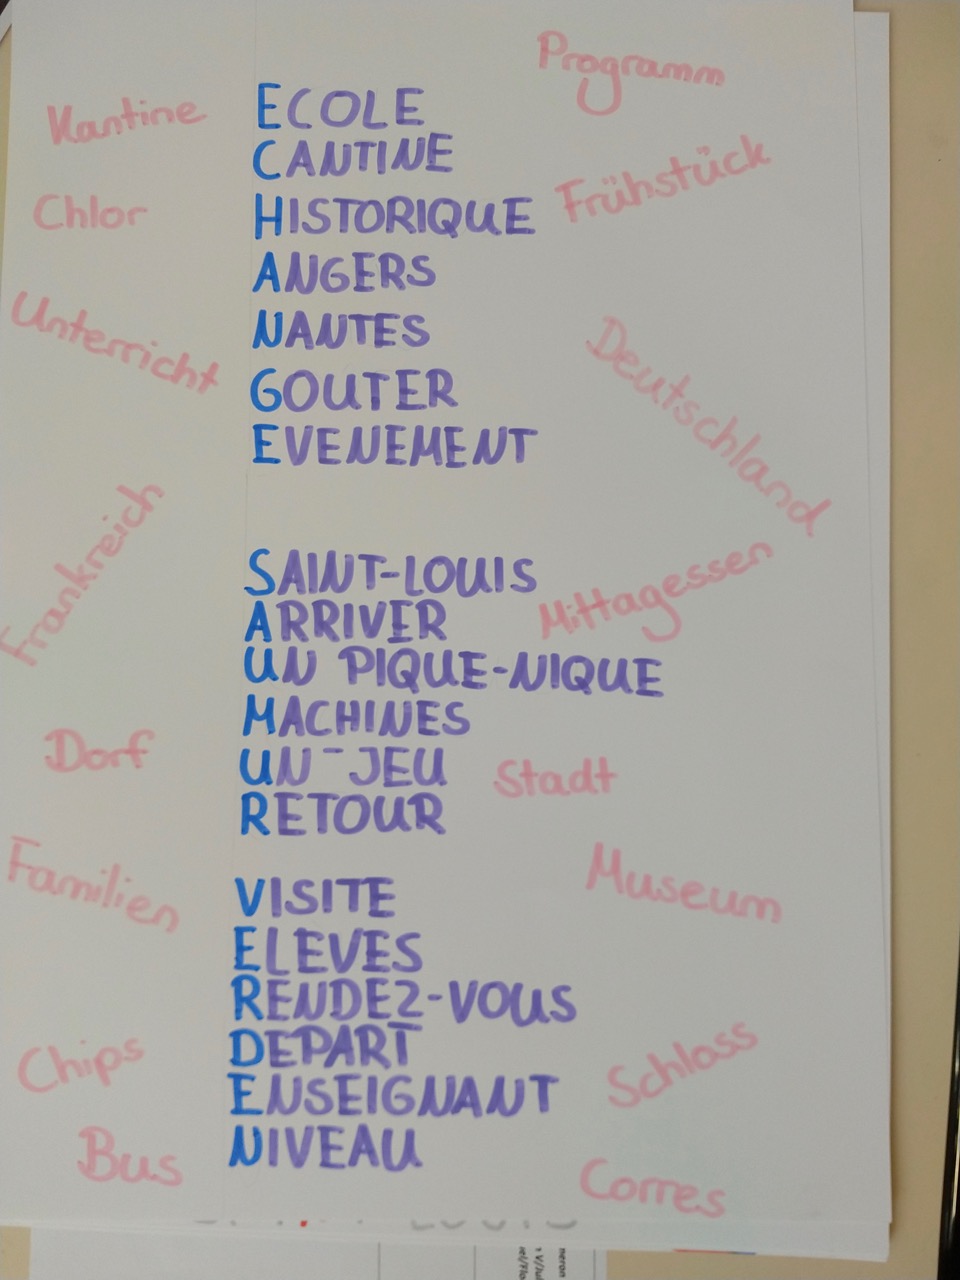 Programm
Kantine
ECOLE
CANTINE
Frühstück
Chlor
HISTORIQUE
ANGERS
Unterricht
NANTES
Deutschland
GOUTER
EVENEMENT
Frankreich
SAINT-LOUIS
Mittagessen
ARRIVER
UN PIQUE-NIQUE
MACHINES
Dorf
UN-JEU
Stadt
RETOUR
Familien
Museum
VISITE
ELEVES
RENDEZ-VOUS
DEPART
Chips
Schloss
ENSEIGNANT
NIVEAU
Bus
Corres